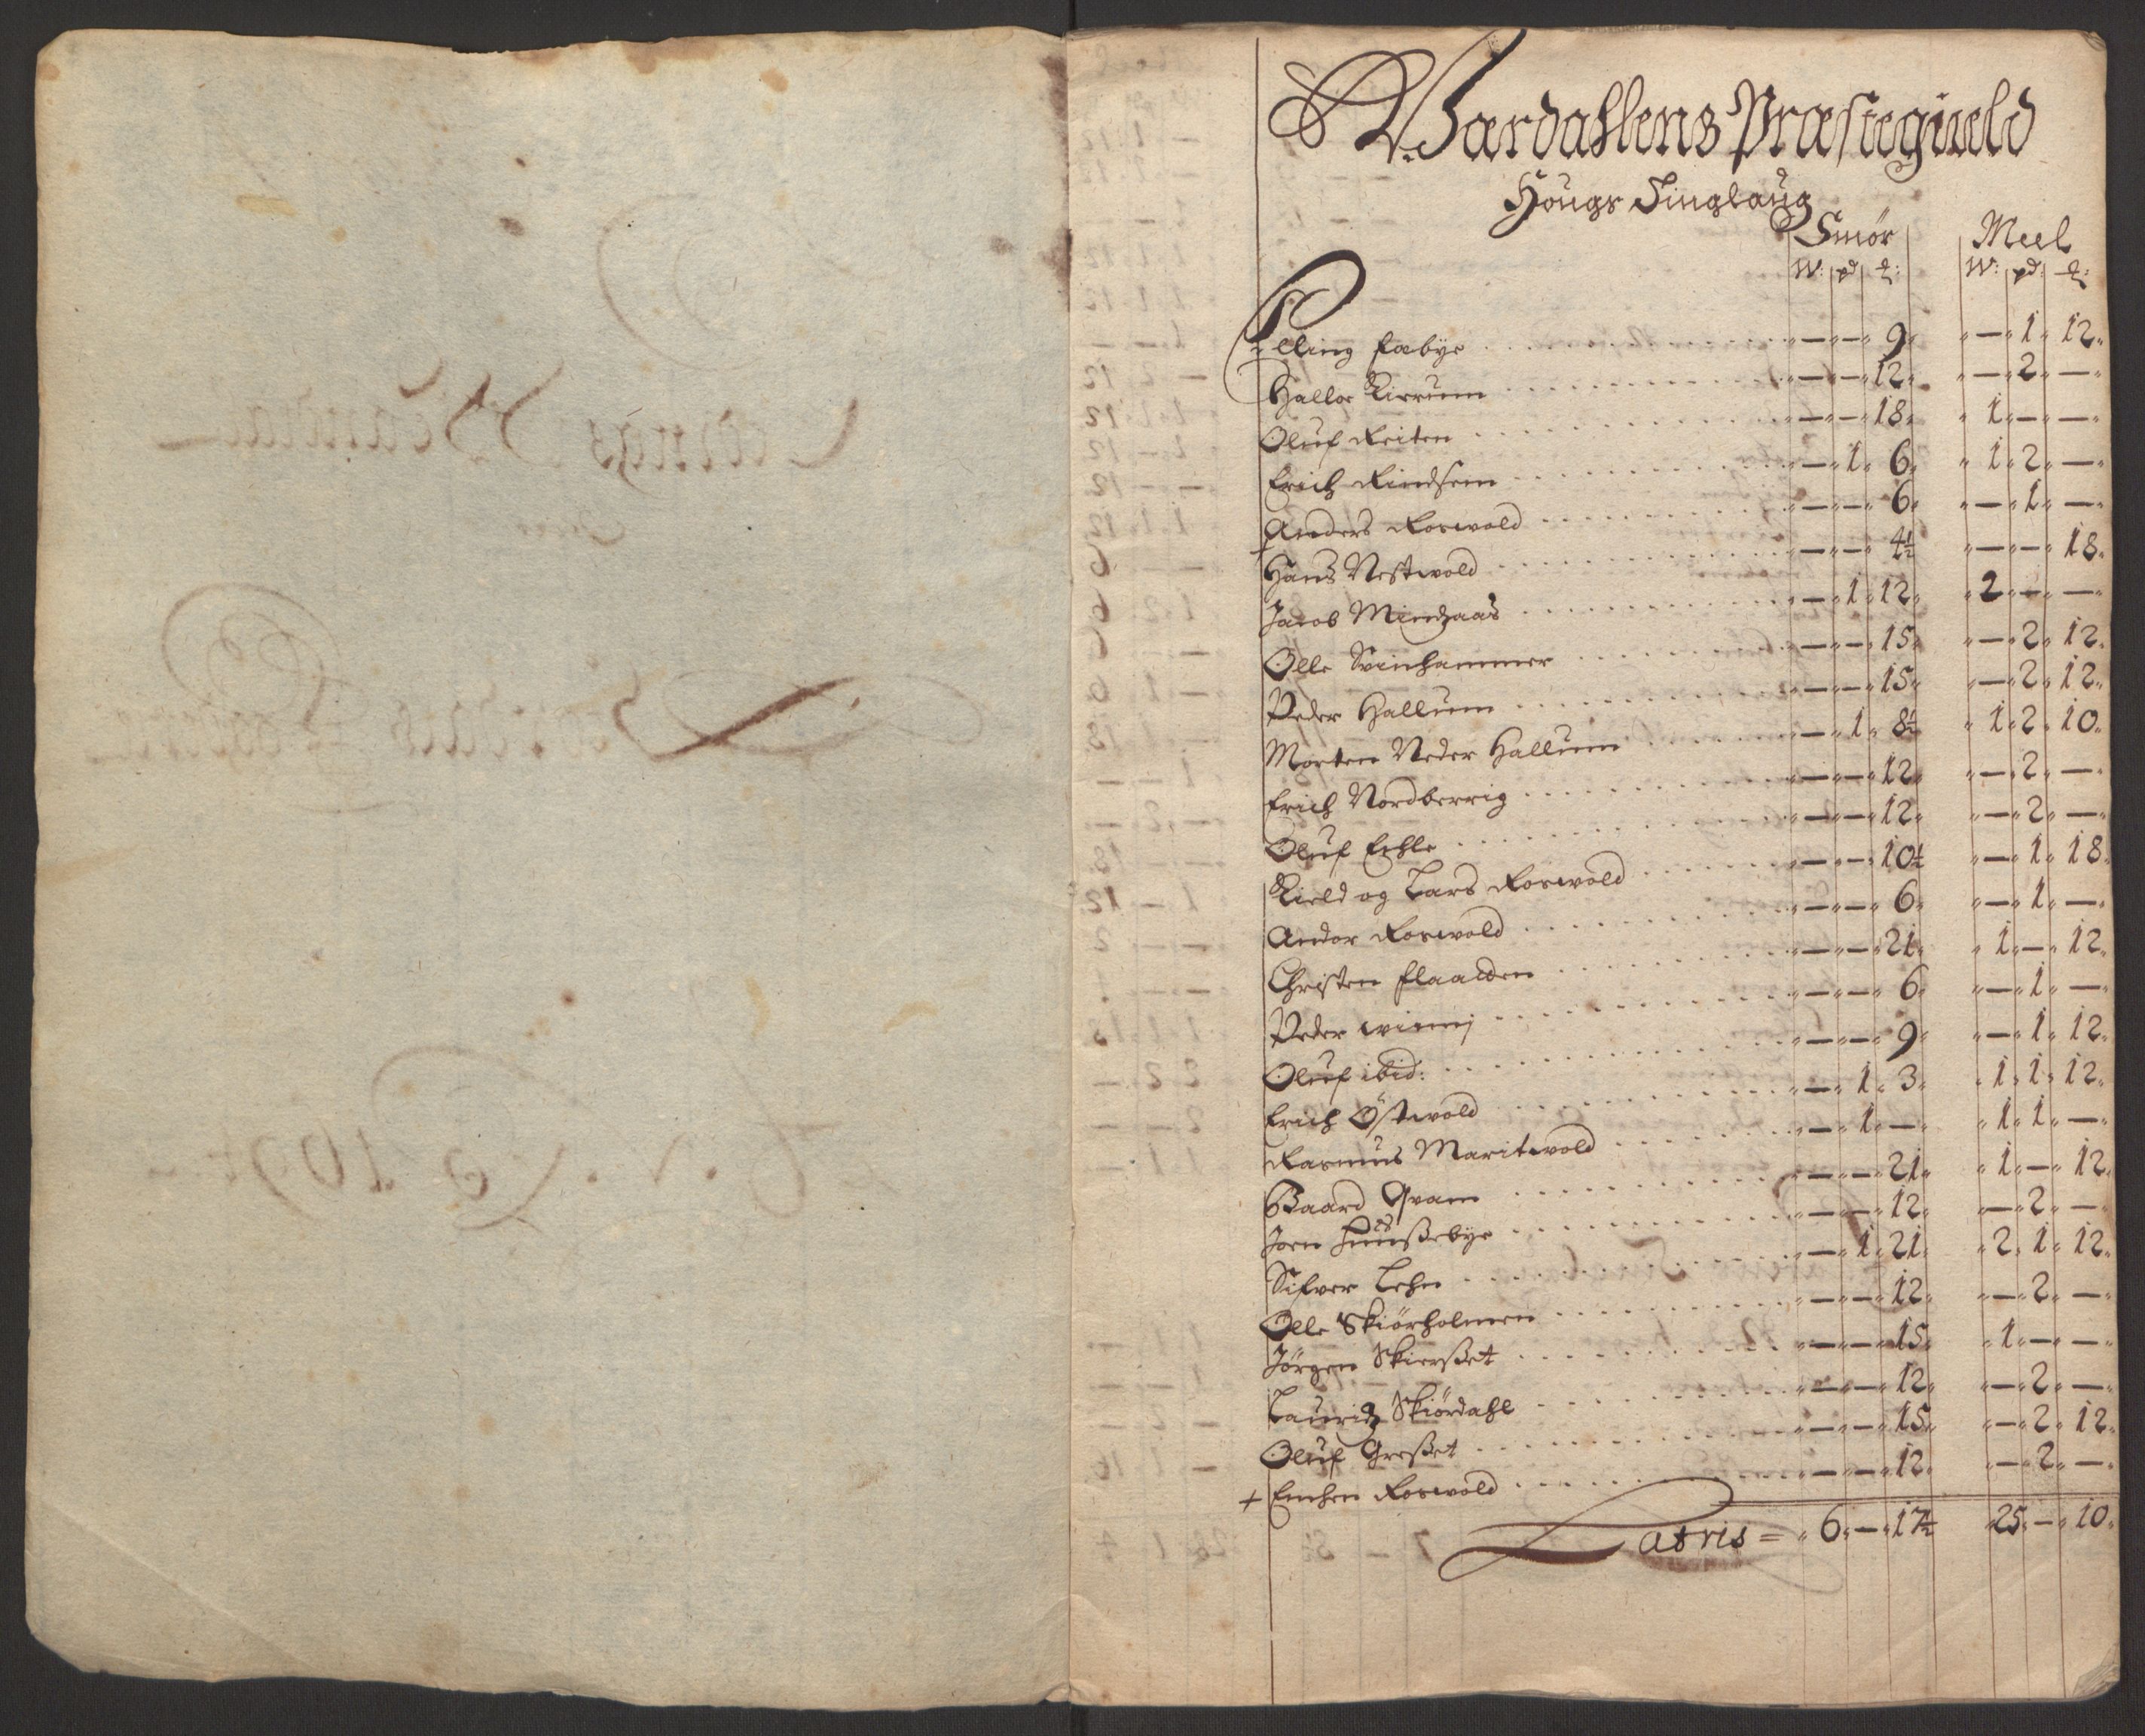 Værdahlens Præstegield
Hougs Tinglaug
Smør Meel
W: pd ℔: W: pd: ℔:
Elling Fæbye . . . — — 9 — 1 12
Hallor Kirrum . . . — — 12 — 2 —
Oluf Reiten . . . — — 18 1 — —
Erich Rindsem . . . — 1 6 1 2 —
Anders Roswold . . . — — 6 — 1 —
+ Hans Nestwold . . . — — 4½ — — 18
Jacob Mindzaas . . . — 1 12 2 — —
Olle Svinhammer . . . — — 15 — 2 12
Peder Hallum . . . — — 15 — 2 12
Morten Neder Hallum . . . — 1 8½ 1 2 10
Erich Nordberrig . . . — — 12 — 2 —
Oluf Echle . . . — — 12 — 2 —
Kield og Lars Roswold . . . — — 10½ — 1 18
Andor Roswold . . . — — 6 — 1 —
Christen Flaadden . . . — — 21 1 — 12
Peder . . . — — 6 — 1 —
Oluf ibid: . . . — — 9 — 1 12
Erich Östwold . . . — 1 3 1 1 12
Rasmus Maritwold . . . — 1 — 1 1 —
Baard Qvam . . . — — 21 1 — 12
Joen Huusßebye . . . — — 12 — 2 —
Sifver Lehn . . . — 1 21 2 1 12
Olle Skiörholmen . . . — — 12 — 2 —
Jörgen Skierßet . . . — — 15 1 — —
Lauridz Skiördahl . . . — — 12 — 2 —
Oluf Greßet . . . — — 15 — 2 12
+ Enchen Roswold . . . — — 12 — 2 —
Latris = 6 — 17½ 25 — 10